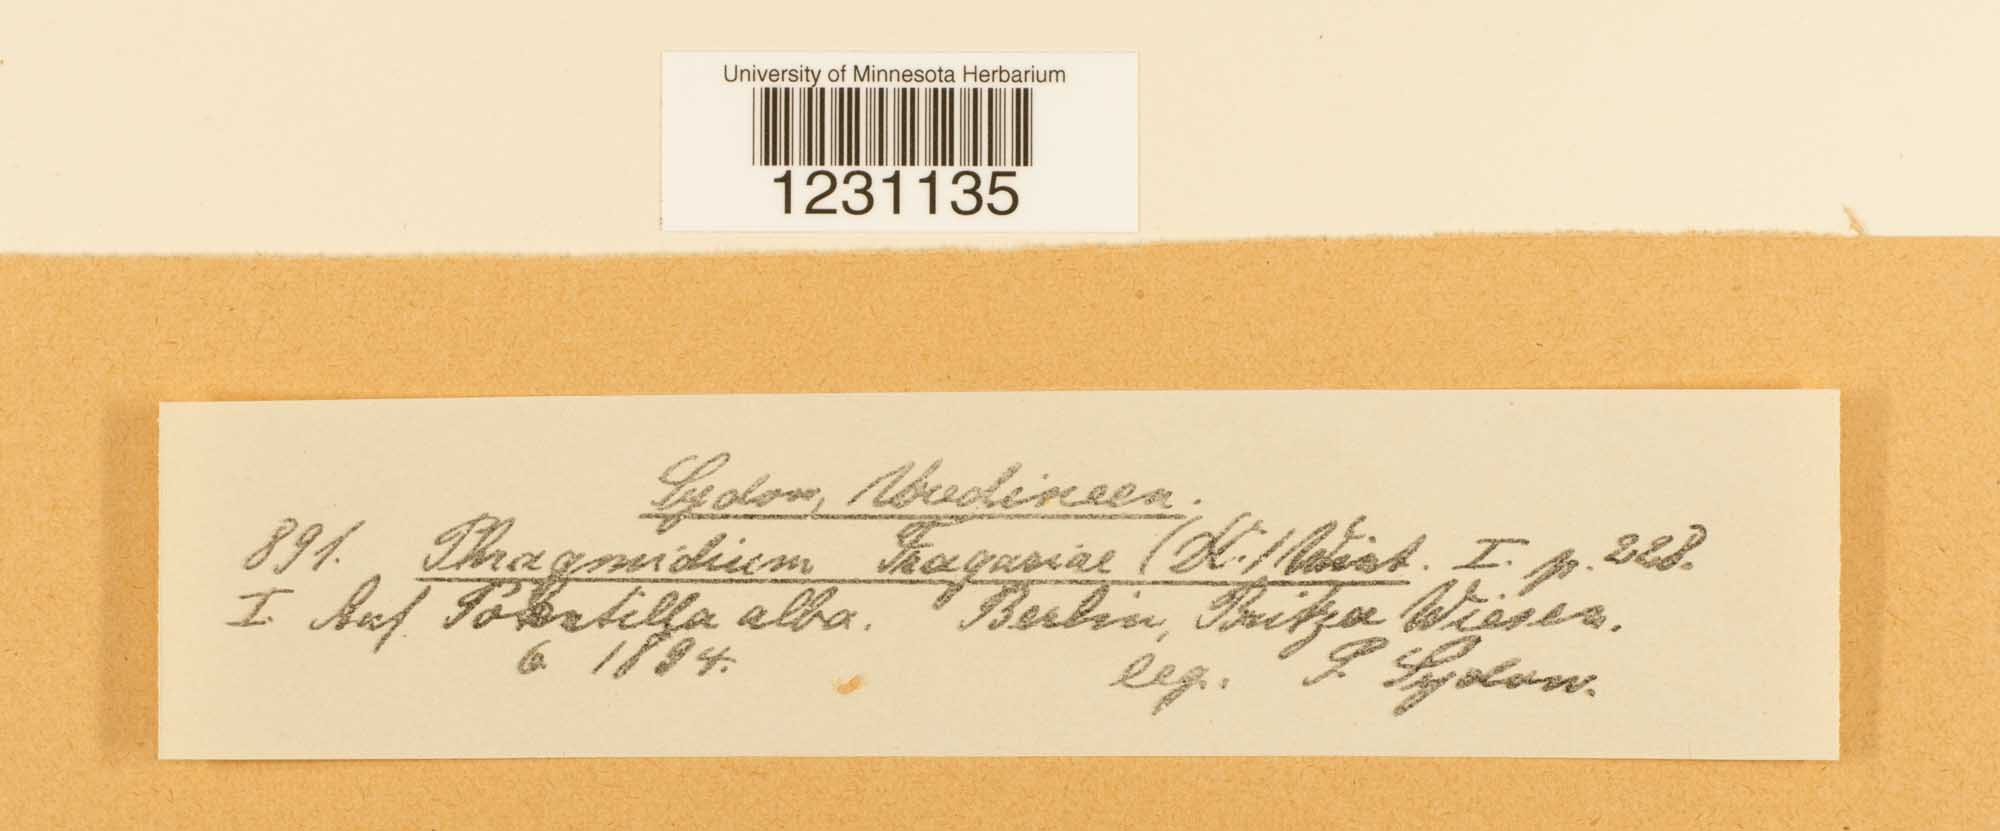 University of Minnesota Herbarium
1231135
Sydow, Uredineen.
891. Phragmidium Fragariae (DC.) Wint. I. p. 228.
I. Auf Potentilla alba. Berlin, Britzer Wiesen.
6 1894.
leg. P. Sydow.